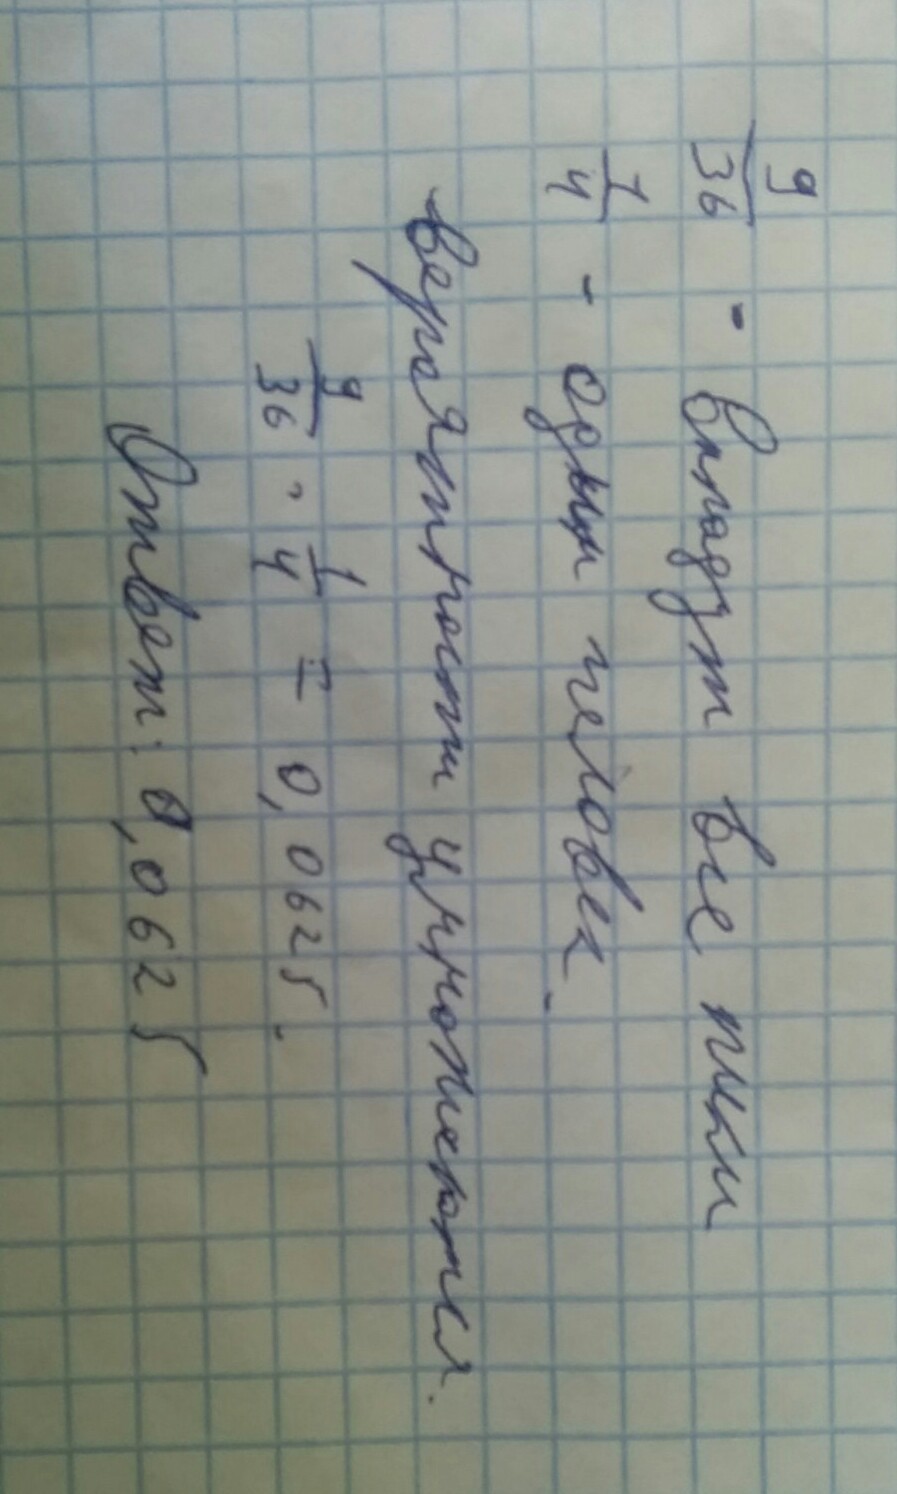 9/36 - выпадут все пики
1/4 - один человек.
Вероятности умножаются.
9/36 · 1/4 = 0,0625.
Ответ: 0,0625